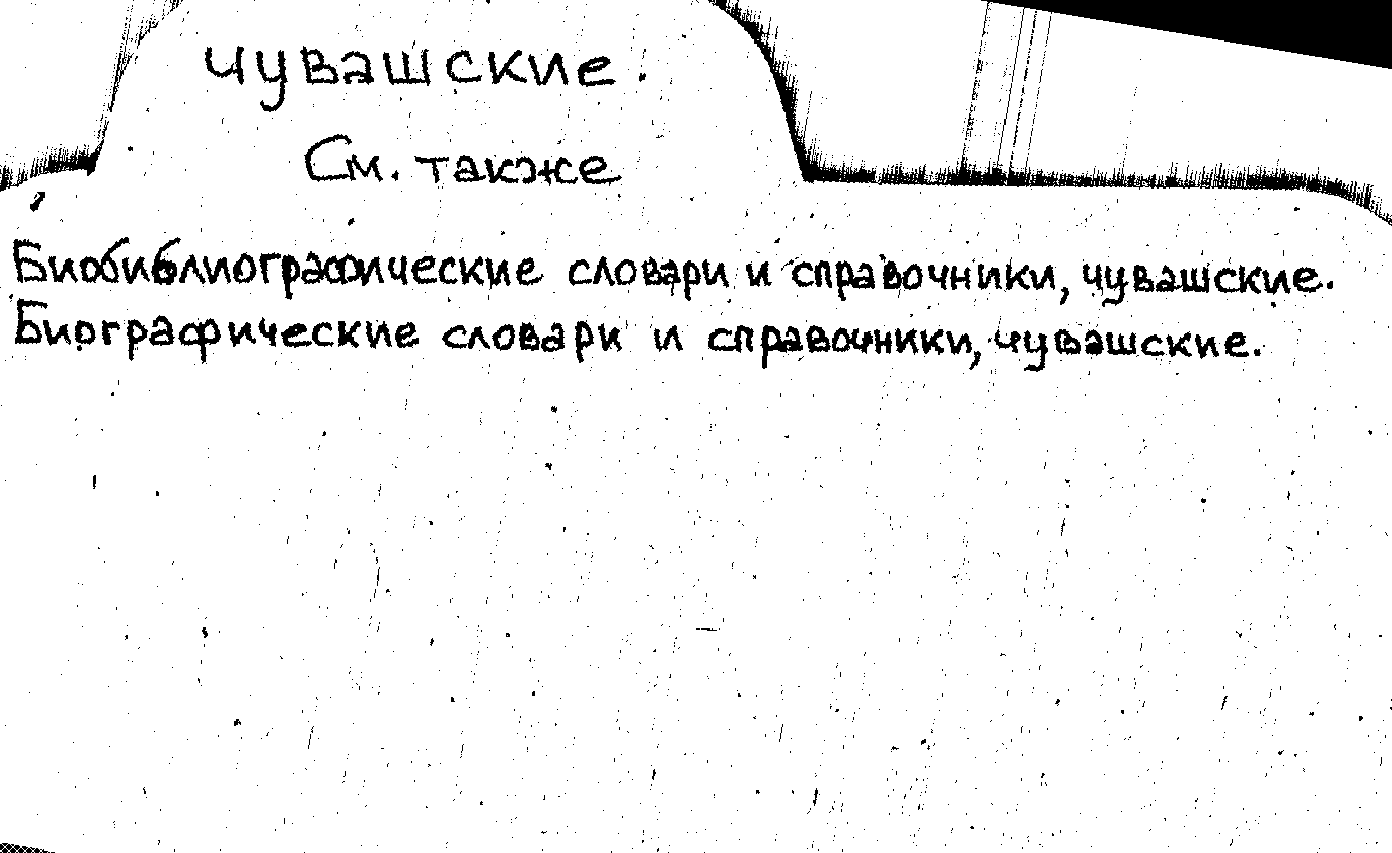 чувашские.
См. также
Биобиблиографические словари и справочники, чувашские.
Биографические словари и справочники, чувашские.